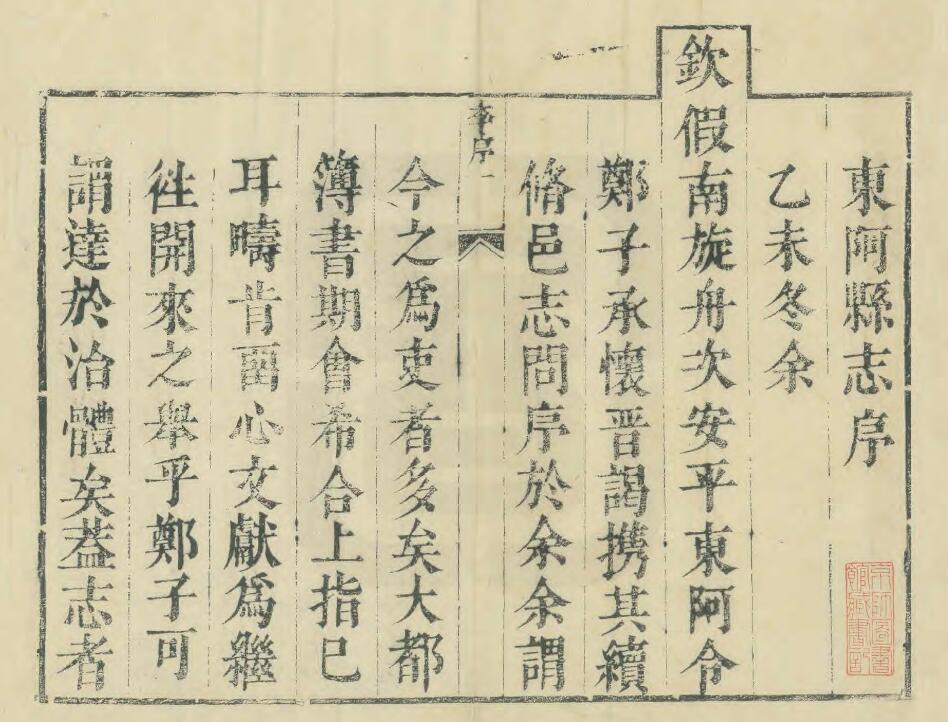 東阿縣志序
乙未冬余
欽假南旋舟次安平東阿令
鄭子承懷晋謁携其續
脩邑志問序於余余謂
李序一
今之爲吏者多矣大都
簿書期會希合上指已
耳疇肯畱心文獻爲繼
徃開來之舉乎鄭子可
謂達於治體矣葢志者
京師圖書
館藏書